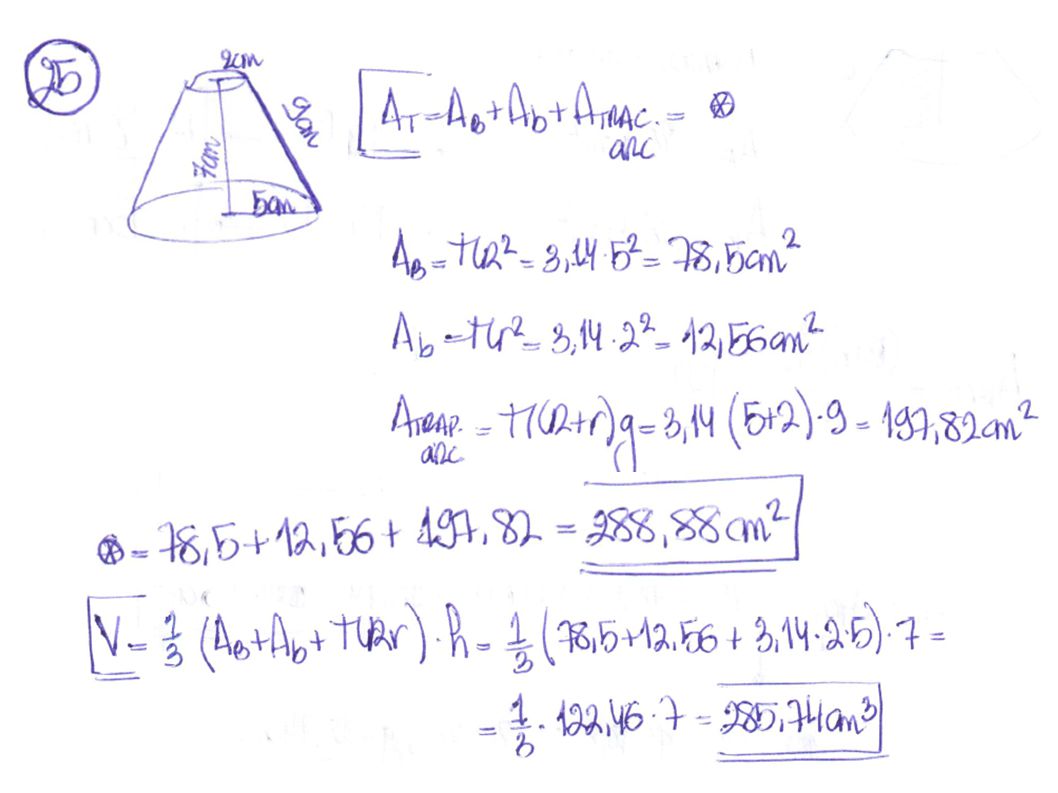 25
2cm
9cm
7cm
5cm
A_T = A_B + A_b + A_TRAC. arc = ⊛
A_B = πR² = 3,14·5² = 78,5cm²
A_b = πr² = 3,14·2² = 12,56cm²
A_TRAP. arc = π(R+r)g = 3,14 (5+2)·9 = 197,82cm²
⊛ = 78,5 + 12,56 + 197,82 = 288,88cm²
V = 1/3 (A_B + A_b + πRr)·h = 1/3 (78,5 + 12,56 + 3,14·2·5)·7 =
= 1/3 · 122,46 · 7 = 285,74cm³